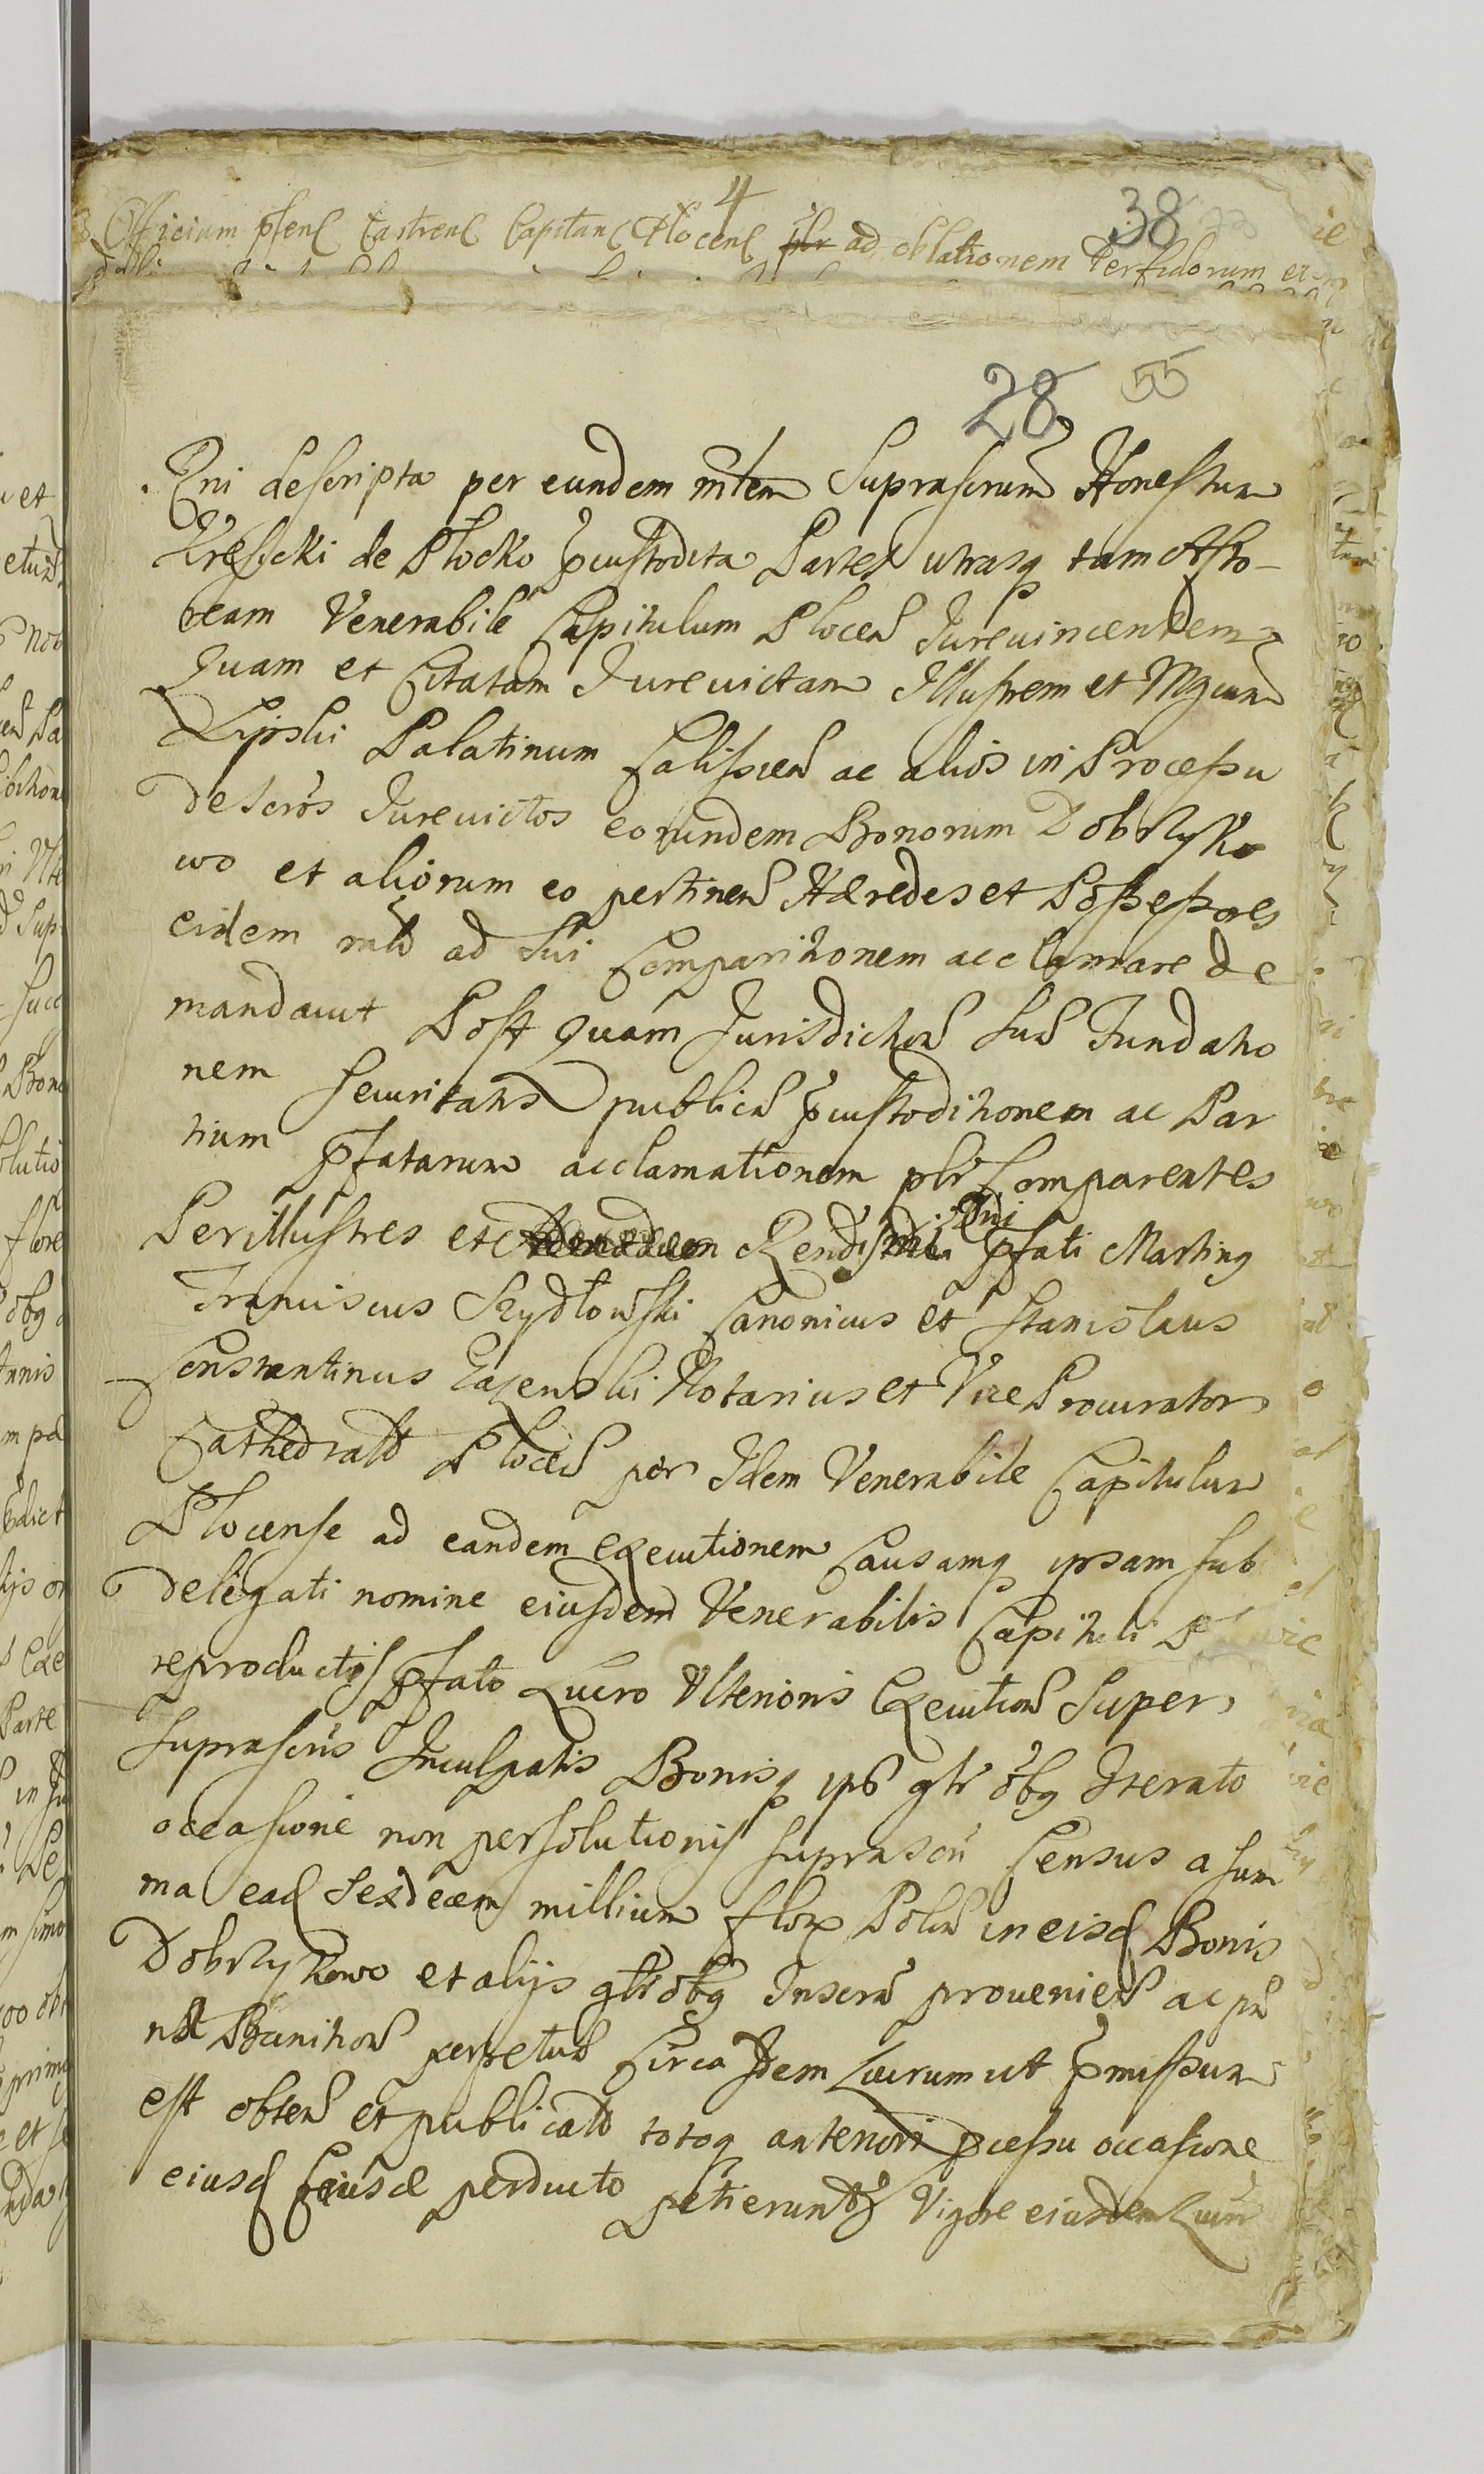 4
38
Officium pſenſ Castrenſ Capitanſ Plocenſ plr ad oblationem Perfidorum et
28 55
Rni deſcripta per eundem mtem Supraſcrum Honeſtum
Kreſicki de Plocko pcuſtodita Partes utrasq tam Acto-
ream Venerabile Capitulum Plocen Jurevincentem
Quam et Citatam Jurevictam Illuſtrem et Mgcum
Lipski Palatinum Caliſsien ac alios in Proceſsu
deſcros Jurevictos eorundem Bonorum Dobrzyko
wo et aliorum eo pertinen Hæredes et Poſseſsores
eidem mli ad Sui Comparitionem acclamare de
mandavit Poſt Quam Jurisdiction Suæ Fundatio
nem Securitatis publicæ pcuſtoditionem ac Par
tium pfatarum acclamationem plr Comparentes
Perilluſtres et Rendi Dni pfati Martinq
Franciscus Szydłowſki Canonicus et Staniſlaus
Conſtantinus Łazenski Notarius et Vice Procurator
Cathedralis Plocen per Idem Venerabile Capitulum
Plocenſe ad eandem executionem Cauſamq ipsam ſub
delegati nomine eiuſdem Venerabilis Capituli
reproductis pfato Lucro Ulterioris Executionis Super
ſupraſcris Inculpatis Bonisq ipſ gtr obq Iterato
occaſione non perſolutionis ſuprascri Cenſus a ſum
ma eadſ Sexdecem millium flor Polon in eisd Bonis
Dobrzykowo et alijs gtr obq Inscri provenien ac pœ
næ Banition perpetuæ Circa Idem Lucrum ut pmiſsum
eſt obten et publicatæ totoq anteriori pceſsu occaſione
eiusd Cauſæ perducto petierunt Vigore eiusdem Lucri